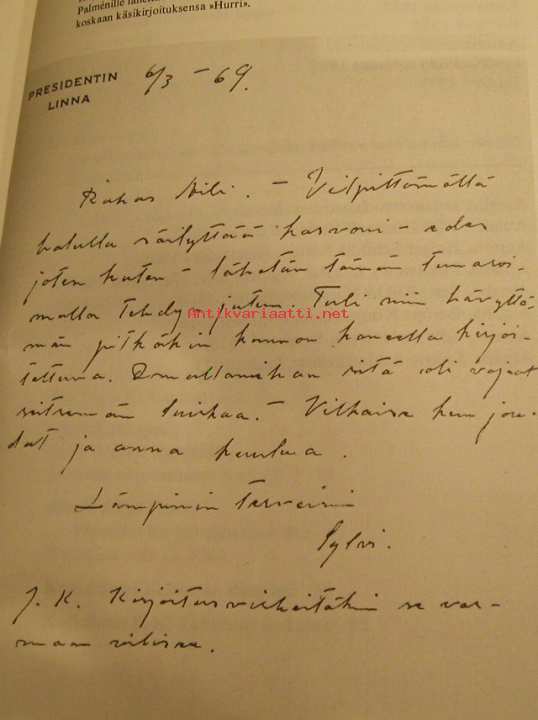 Palménille
koskaan käsikirjoituksensa »Hurri».
PRESIDENTIN
LINNA
6/3 – 69.
Rakas Aili. – Vilpittömällä
halulla säilyttää kasvoni – edes
joten kuten – lähetän tämän
malla tehdyn jutun. Tuli niin hävyttö-
män pitkäkin koneella kirjoi-
tettuna. sitä oli vajaat
seitsemän liuskaa. – Vilkaise kun jou-
dat ja anna kuulua.
Lämpimin terveisin
Sylvi.
J. K. Kirjoitusvirheitäkin se var-
maan vilisee.
Antikvariaatti.net